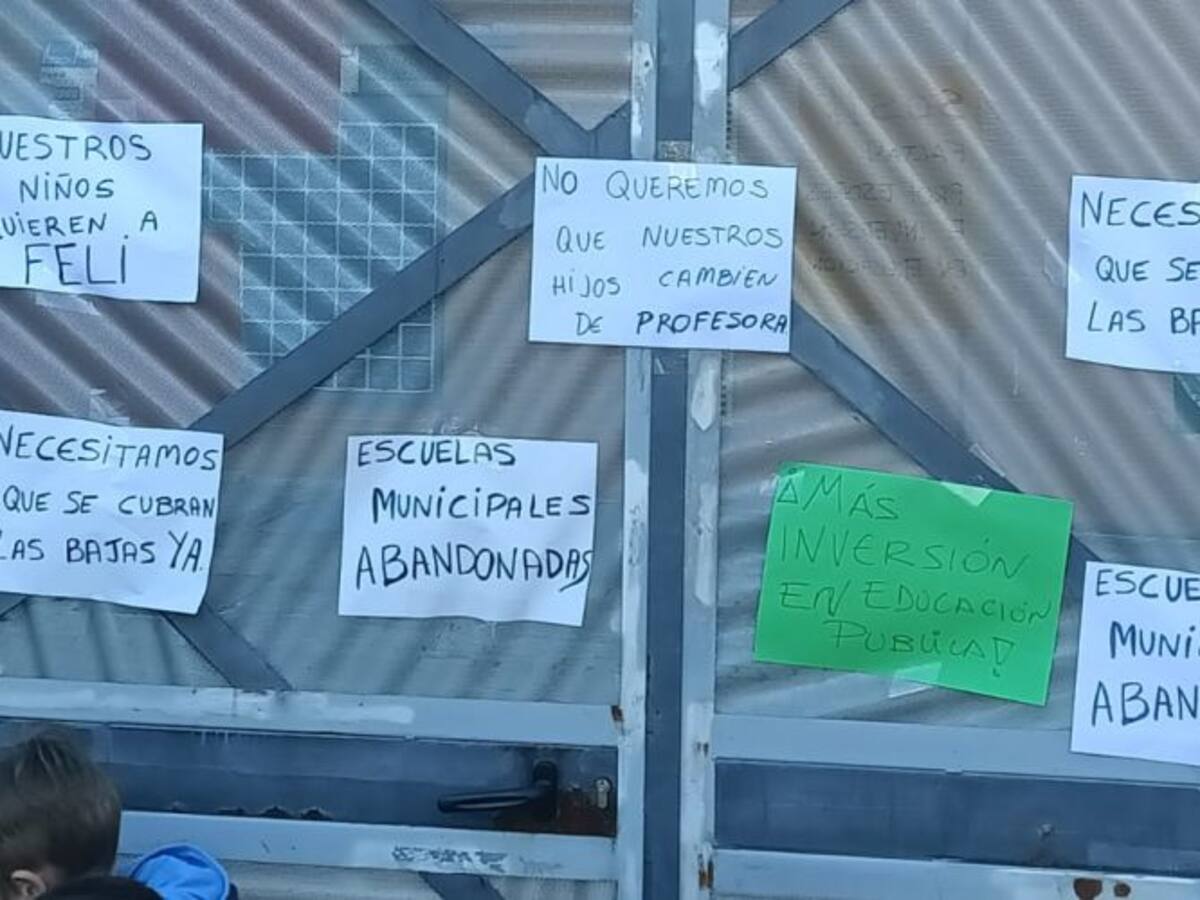 UESTROS
NIÑOS
UIEREN A
FELI
NO QUEREMOS
QUE NUESTROS
HIJOS CAMBIEN
DE PROFESORA
NECES
QUE SE
LAS BA
NECESITAMOS
QUE SE CUBRAN
LAS BAJAS YA.
ESCUELAS
MUNICIPALES
ABANDONADAS
¡MÁS
INVERSIÓN
EN EDUCACIÓN
PUBLICA!
ESCUE
MUNI
ABAN